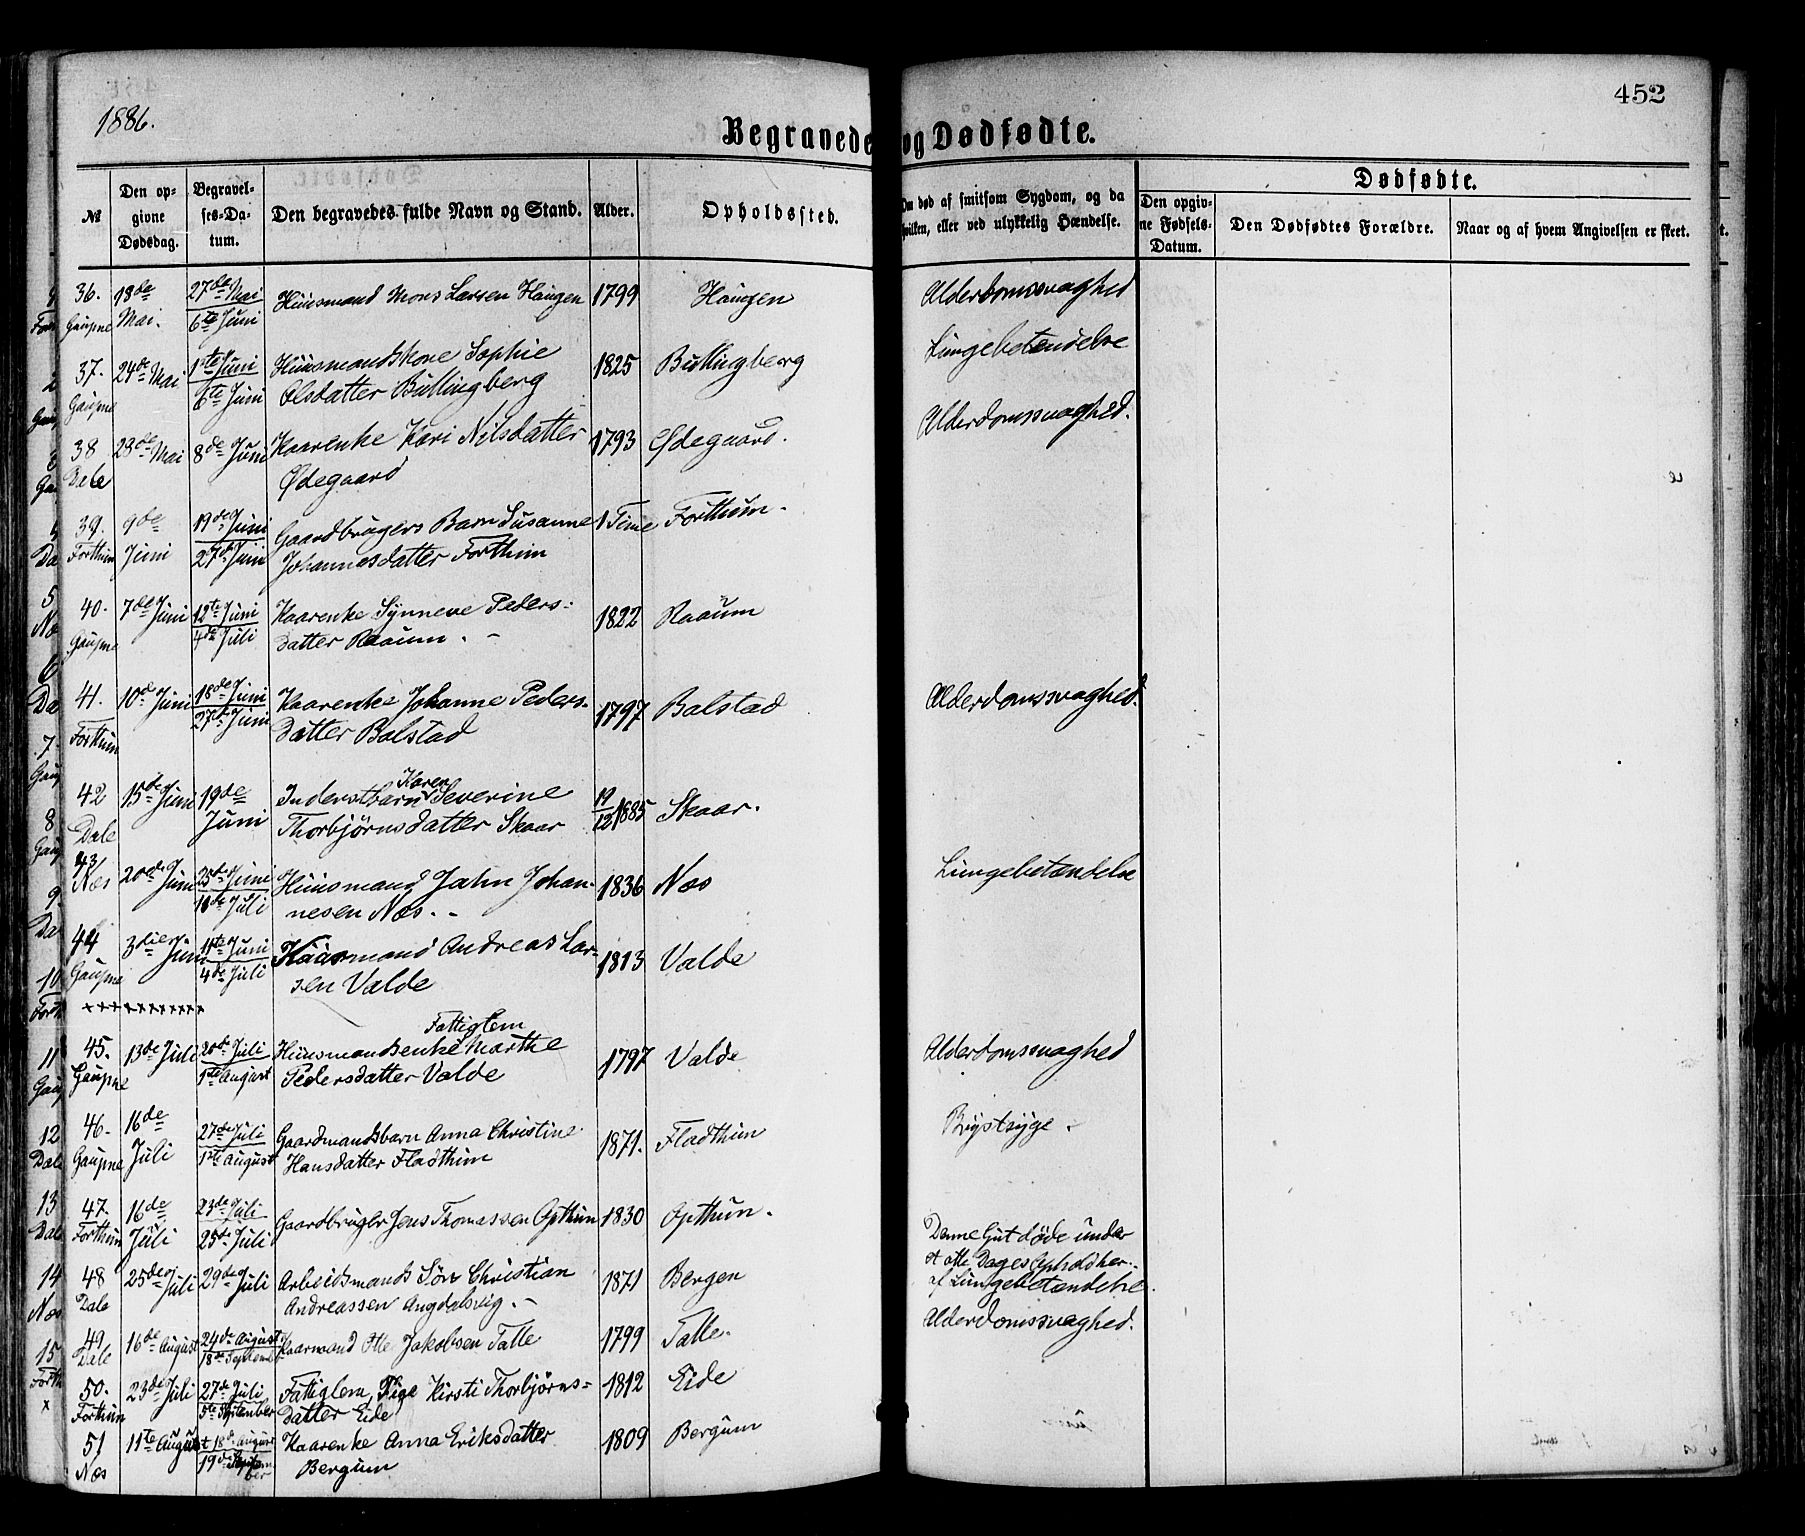 1886.
452
Begravede og Dødfødte.
№
Den op-
givne
Dødsdag.
Begravel-
ses-Da-
tum.
Den begravedes fulde Navn og Stand.
Alder.
Opholdssted.
Om død af smitsom Sygdom, og da
hvilken, eller ved ulykkelig Hændelse.
Dødfødte.
Den opgiv-
ne Fødsels-
Datum.
Den Dødfødtes Forældre.
Naar og af hvem Angivelsen er skeet.
36. 18de 27de Mai Huusmand Mons Larsen Haugen 1799 Haugen Alderdomssvaghed
Gaupne Mai. 6te Juni
37. 24de Mai 1ste Juni Huusmandskone Sophie 1825 Bullingberg Lungebetændelse
Gaupne 6te Juni Olsdatter Bullingberg
38 28de Mai 8de Juni Kaarenke Kari Nilsdatter 1793 Ødegaard. Alderdomssvaghed.
Dale Ødegaard
39. 9de 19de Juni Gaardbrugers Barn Susanne 1 Time Forthun.
Forthun Juni 27de Juni Johannesdatter Forthun
40. 7de Juni 12te Juni Kaarenke Synneve Peders- 1822 Raaum
Gaupne 4de Juli datter Raaum. -
41. 10de Juni 18de Juni Kaarenke Johanne Peders- 1797 Bolstad Alderdomssvaghed.
Forthun 27de Juni datter Bolstad
42 15de Juni 19de Inderstbarn Karen Severine 19/12 1885 Skaar.
Dale Juni Thorbjørnsdatter Skaar
43 20de Juni 25de Juni Huusmand John Johan- 1836 Næs Lungebetændelse
Næs 18de Juli nesen Næs. -
44 3die Juni 11te Juni Kaarmand Andreas Lar- 1813 Valde
Gaupne 4de Juli sen Valde
+++++++++++
45. 13de Juli 20de Juli Fattiglem Huusmandsenke Marthe 1797 Valde Alderdomssvaghed
Gaupne 1ste August Pedersdatter Valde
46. 16de 27de Juli Gaardmandsbarn Anna Christine 1871. Fladthun Brystsyge.
Gaupne Juli 1ste August Hansdatter Fladthun
47. 16de 23de Juli Gaardbruger Jens Thomassen Opthun 1830 Opthun.
Forthun Juli 25de Juli
48 25de Juli 29de Juli Arbeidsmands Søn Christian 1871 Bergen Denne Gut døde under
Dale Andreassen Angdalsvig. - et otte Dages Ophold her
af Lungebetændelse.
49 16de August 24de August Kaarmand Ole Jakobsen Talle 1799 Talle. Alderdomssvaghed.
Dale 18de September
50. 23de Juli 27de Juli Fattiglem, Pige Kirsti Thorbjørns- 1812 Eide
Forthun 5te September datter Eide
51 11te August 18de August Kaarenke Anna Eriksdatter 1809 Bergum
Næs 19de September Bergum